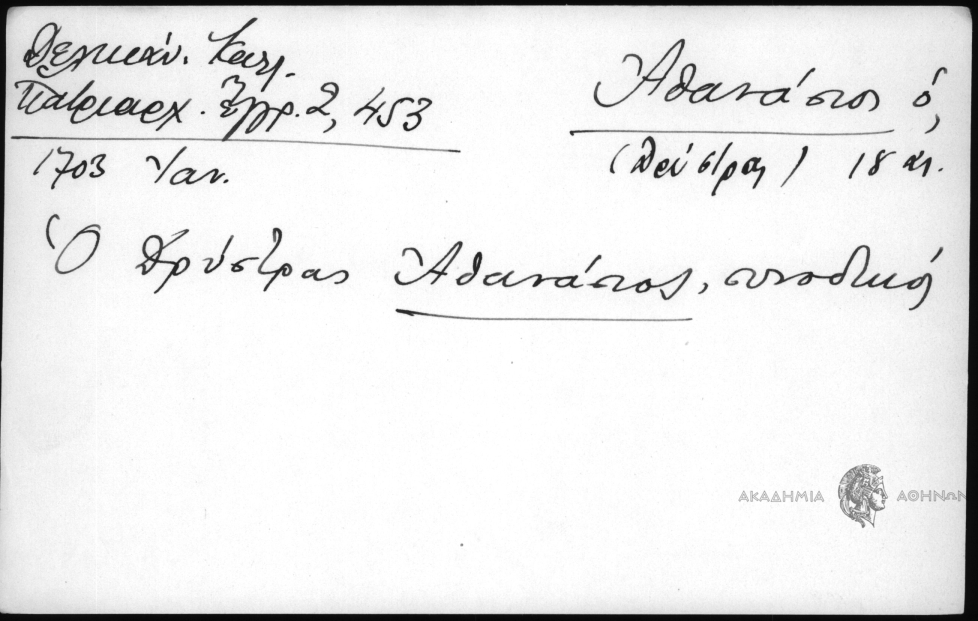 Δελικάν. Κατλ.
Πατριαρχ. Ἔγγρ. 2, 453
1703 Ἰαν.
Ἀθανάσιος ὁ,
(Δρύστρας) 18 αἰ.
Ὁ Δρύστρας Ἀθανάσιος, συνοδικός
ΑΚΑΔΗΜΙΑ ΑΘΗΝΩΝ